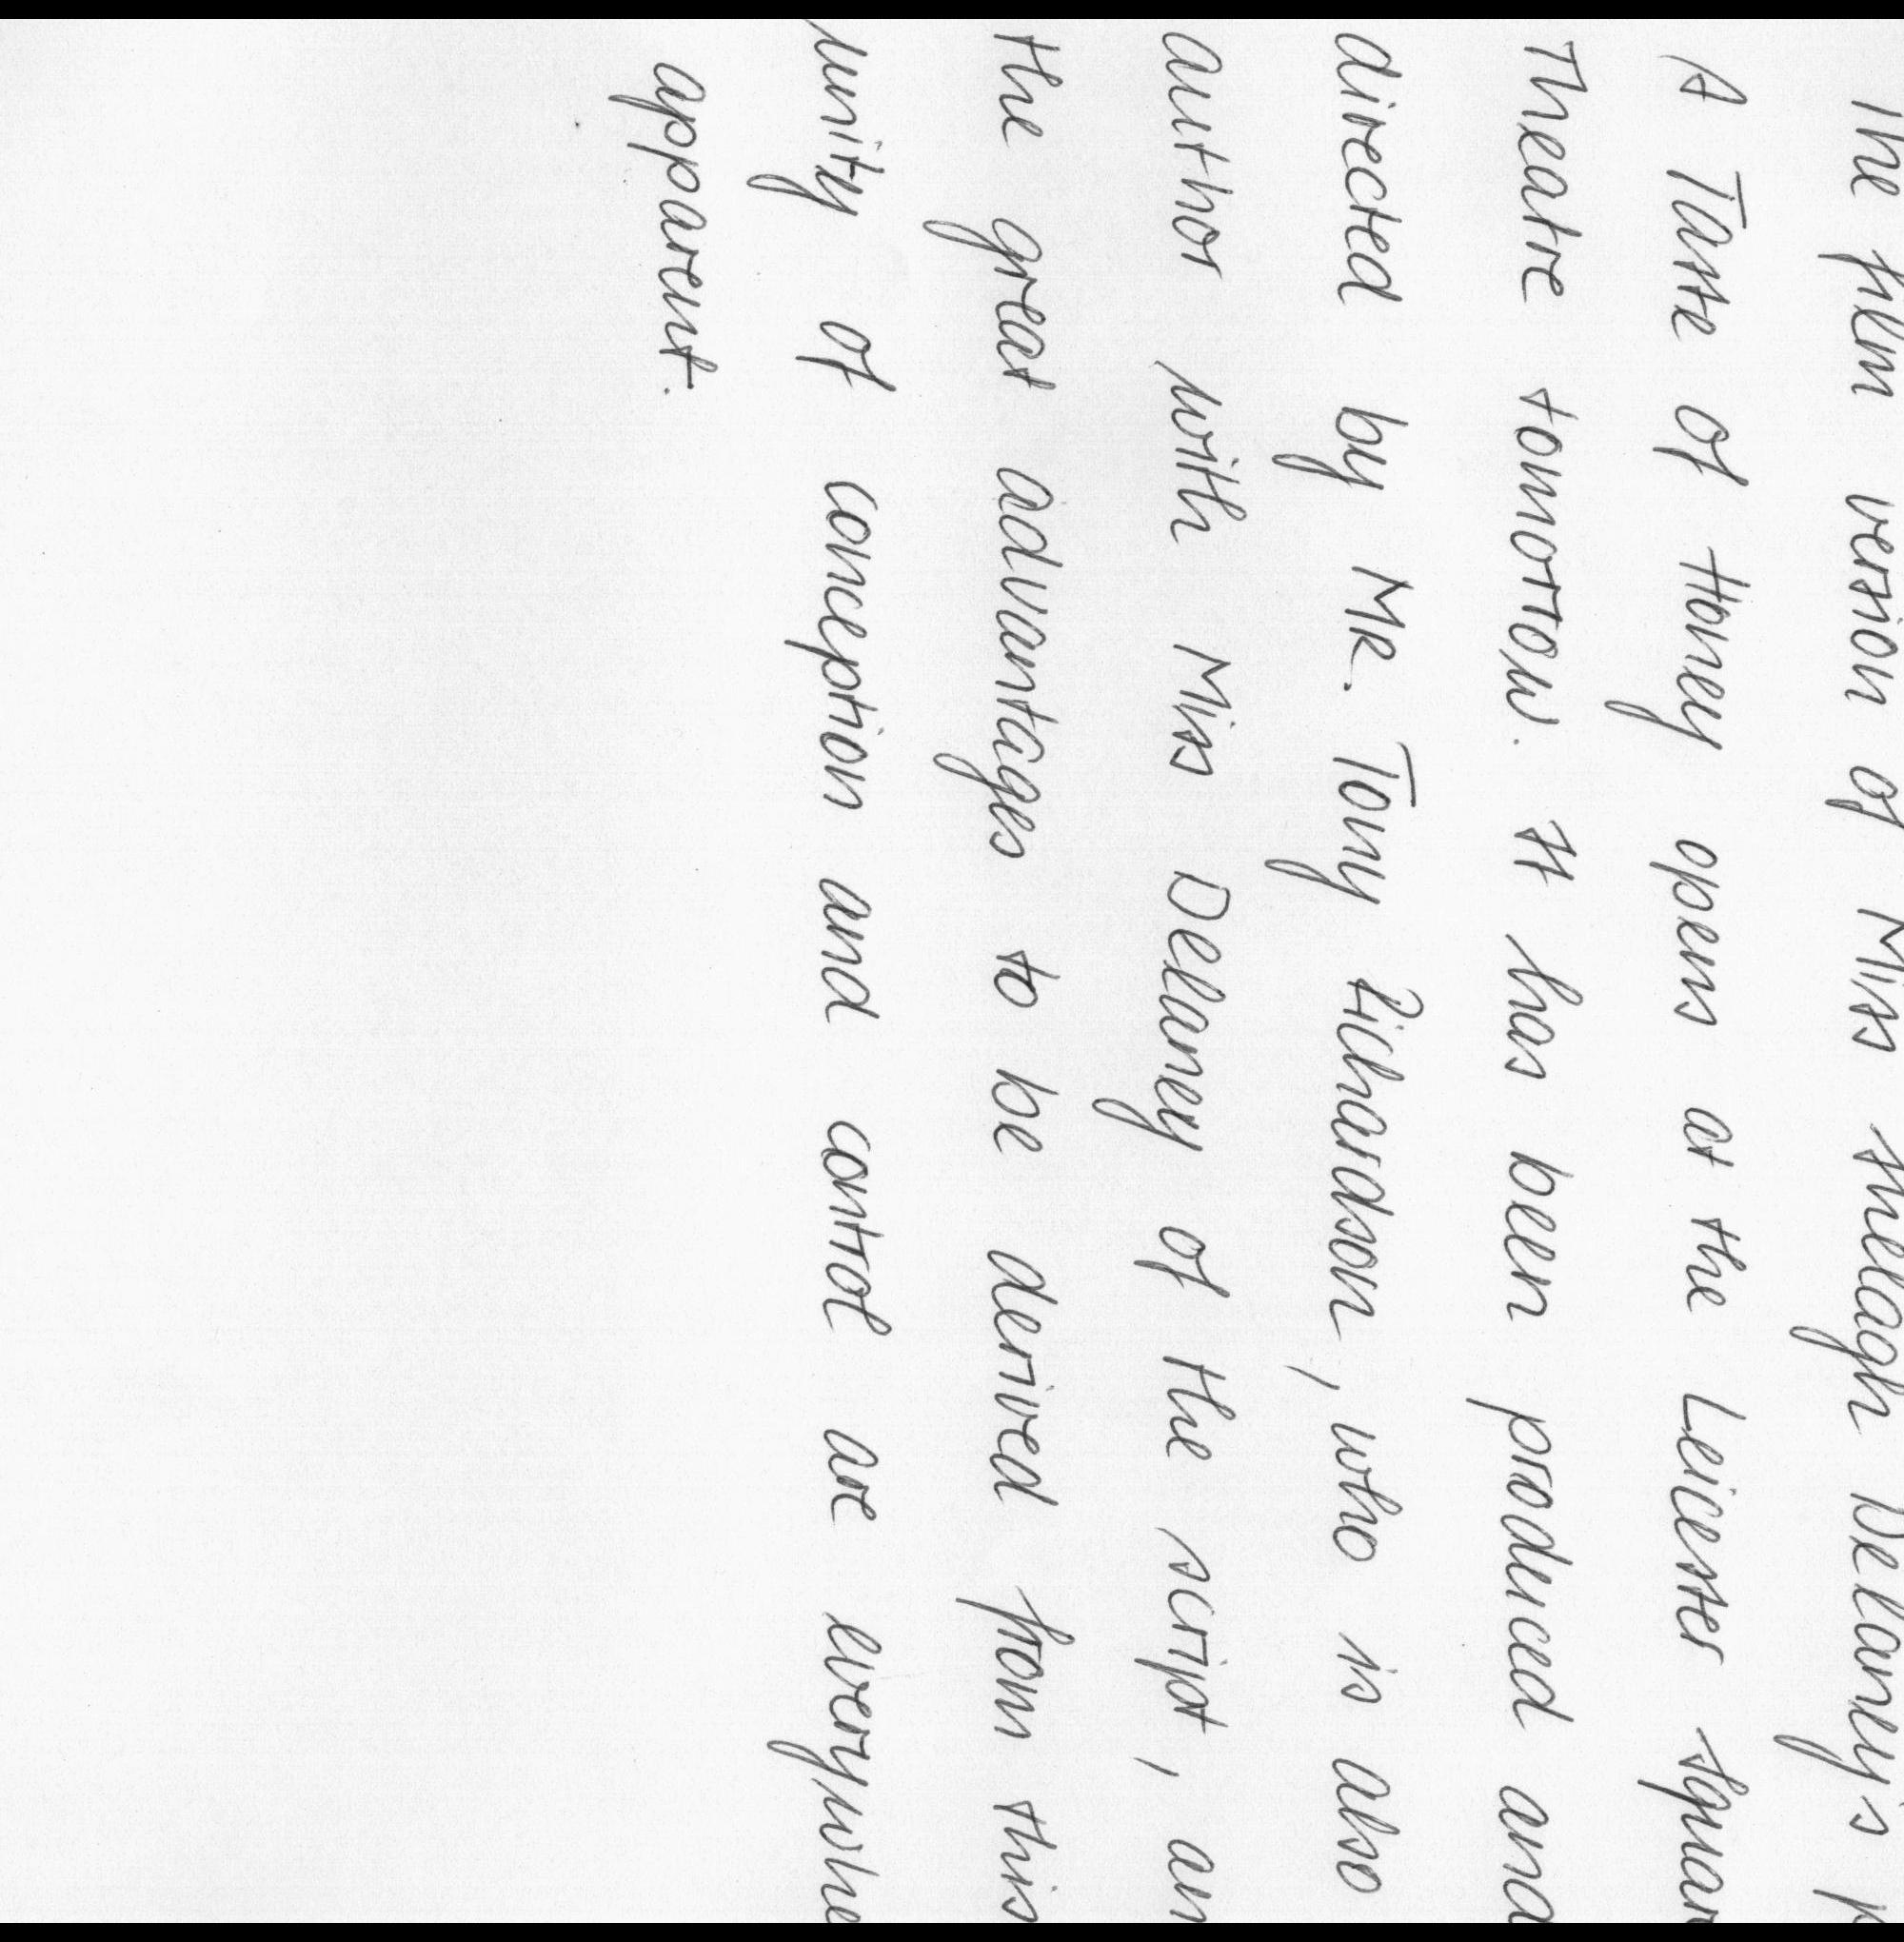 The film version of Miss Shelagh Delaney's p
A Taste of Honey opens at the Leicester Squar
Theatre tomorrow. It has been produced and
directed by Mr. Tony Richardson, who is also
author with Miss Delaney of the script, an
the great advantages to be derived from this
unity of conception and control are everywhe
apparent.